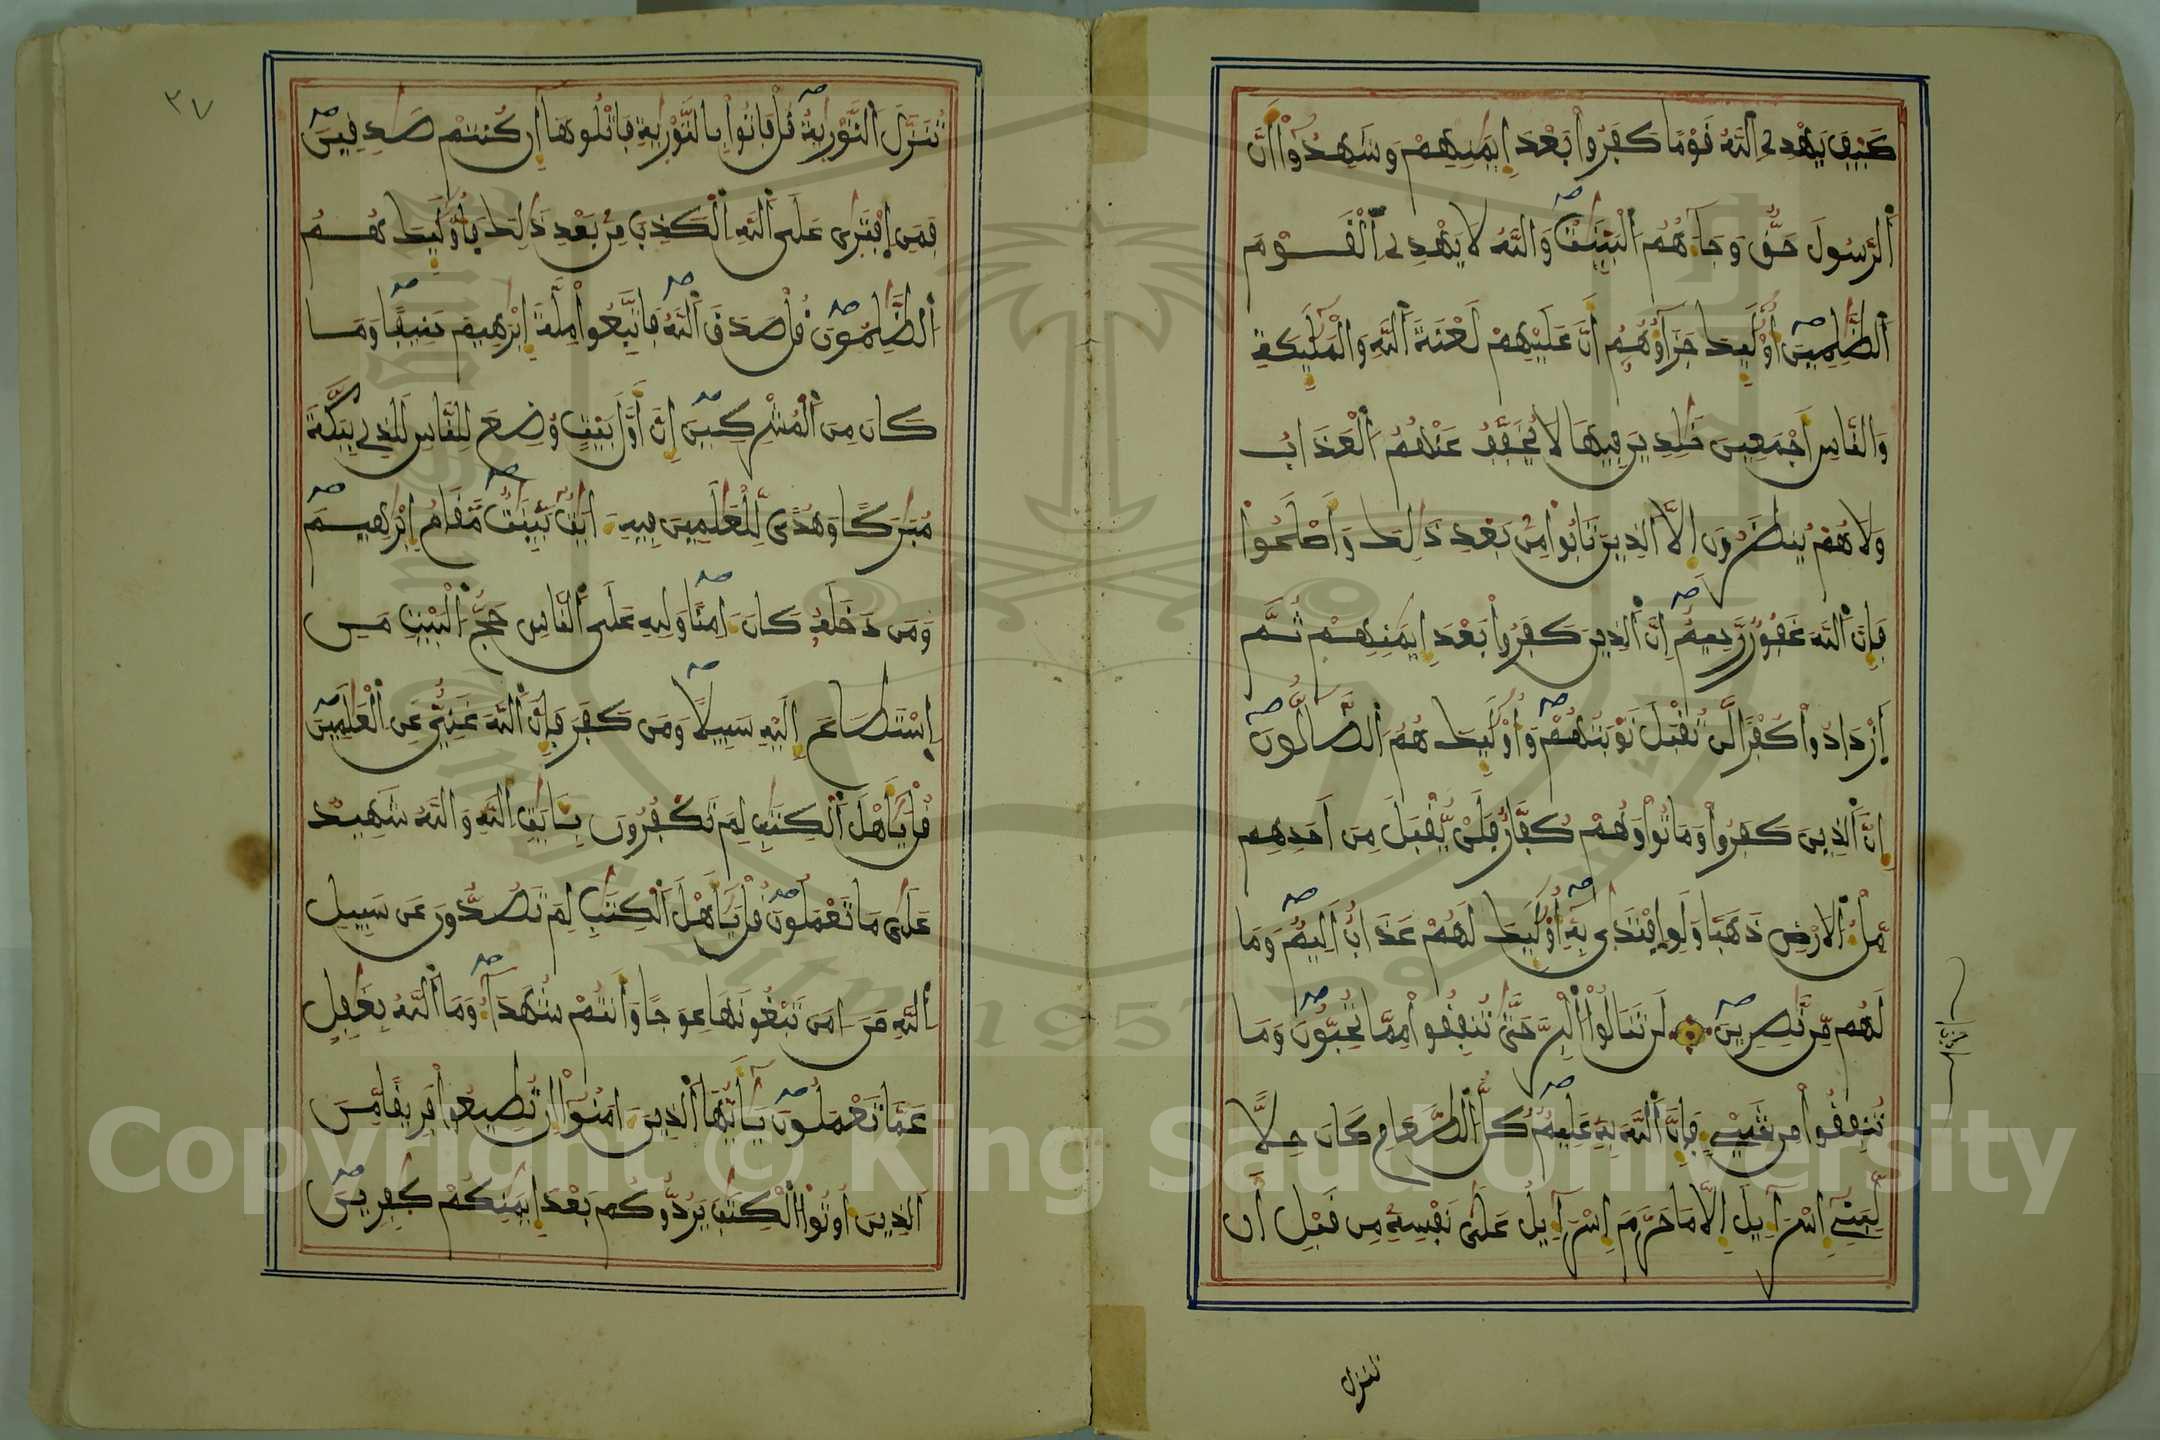 كَيْفَ يَهْدِي اللَّهُ قَوْمًا كَفَرُوا بَعْدَ إِيمَٰنِهِمْ وَشَهِدُوا أَنَّ
الرَّسُولَ حَقٌّ وَجَاءَهُمُ الْبَيِّنَٰتُ وَاللَّهُ لَا يَهْدِي الْقَوْمَ
الظَّٰلِمِينَ أُوْلَٰئِكَ جَزَاؤُهُمْ أَنَّ عَلَيْهِمْ لَعْنَةَ اللَّهِ وَالْمَلَٰئِكَةِ
وَالنَّاسِ أَجْمَعِينَ خَٰلِدِينَ فِيهَا لَا يُخَفَّفُ عَنْهُمُ الْعَذَابُ
وَلَا هُمْ يُنظَرُونَ إِلَّا الذِينَ تَابُوا مِنْ بَعْدِ ذَٰلِكَ وَأَصْلَحُوا
فَإِنَّ اللَّهَ غَفُورٌ رَّحِيمٌ إِنَّ الذِينَ كَفَرُوا بَعْدَ إِيمَٰنِهِمْ ثُمَّ
ازْدَادُوا كُفْرًا لَّن تُقْبَلَ تَوْبَتُهُمْ وَأُوْلَٰئِكَ هُمُ الضَّالُّونَ
إِنَّ الذِينَ كَفَرُوا وَمَاتُوا وَهُمْ كُفَّارٌ فَلَنْ يُّقْبَلَ مِنَ أَحَدِهِم
مِّلْءُ الْأَرْضِ ذَهَبًا وَلَوِ افْتَدَىٰ بِهِ أُوْلَٰئِكَ لَهُمْ عَذَابٌ أَلِيمٌ وَمَا
لَهُم مِّن نَّٰصِرِينَ لَن تَنَالُوا الْبِرَّ حَتَّىٰ تُنفِقُوا مِمَّا تُحِبُّونَ وَمَا
تُنفِقُوا مِن شَيْءٍ فَإِنَّ اللَّهَ بِهِ عَلِيمٌ كُلُّ الطَّعَامِ كَانَ حِلًّا
لِّبَنِي إِسْرَاءِيلَ إِلَّا مَا حَرَّمَ إِسْرَاءِيلُ عَلَىٰ نَفْسِهِ مِن قَبْلِ أَن
تنزل
٣٧
تُنَزَّلَ التَّوْرَىٰةُ قُلْ فَاتُوا بِالتَّوْرَىٰةِ فَاتْلُوهَا إِن كُنتُمْ صَٰدِقِينَ
فَمَنِ افْتَرَىٰ عَلَى اللَّهِ الْكَذِبَ مِنْ بَعْدِ ذَٰلِكَ فَأُوْلَٰئِكَ هُمُ
الظَّٰلِمُونَ قُلْ صَدَقَ اللَّهُ فَاتَّبِعُوا مِلَّةَ إِبْرَٰهِيمَ حَنِيفًا وَمَا
كَانَ مِنَ الْمُشْرِكِينَ إِنَّ أَوَّلَ بَيْتٍ وُضِعَ لِلنَّاسِ لَلذِي بِبَكَّةَ
مُبَٰرَكًا وَهُدًى لِّلْعَٰلَمِينَ فِيهِ ءَايَٰتٌ بَيِّنَٰتٌ مَّقَامُ إِبْرَٰهِيمَ
وَمَن دَخَلَهُ كَانَ ءَامِنًا وَلِلهِ عَلَى النَّاسِ حَجُّ الْبَيْتِ مَنِ
اسْتَطَاعَ إِلَيْهِ سَبِيلًا وَمَن كَفَرَ فَإِنَّ اللَّهَ غَنِيٌّ عَنِ الْعَٰلَمِينَ
قُلْ يَٰأَهْلَ الْكِتَٰبِ لِمَ تَكْفُرُونَ بِـَٔايَٰتِ اللَّهِ وَاللَّهُ شَهِيدٌ
عَلَىٰ مَا تَعْمَلُونَ قُلْ يَٰأَهْلَ الْكِتَٰبِ لِمَ تَصُدُّونَ عَن سَبِيلِ
اللَّهِ مَنَ ءَامَنَ تَبْغُونَهَا عِوَجًا وَأَنتُمْ شُهَدَاءُ وَمَا اللَّهُ بِغَٰفِلٍ
عَمَّا تَعْمَلُونَ يَٰأَيُّهَا الذِينَ ءَامَنُوا إِن تُطِيعُوا فَرِيقًا مِّنَ
الذِينَ أُوتُوا الْكِتَٰبَ يَرُدُّوكُم بَعْدَ إِيمَٰنِكُمْ كَٰفِرِينَ
Copyright © King Saud University
1957